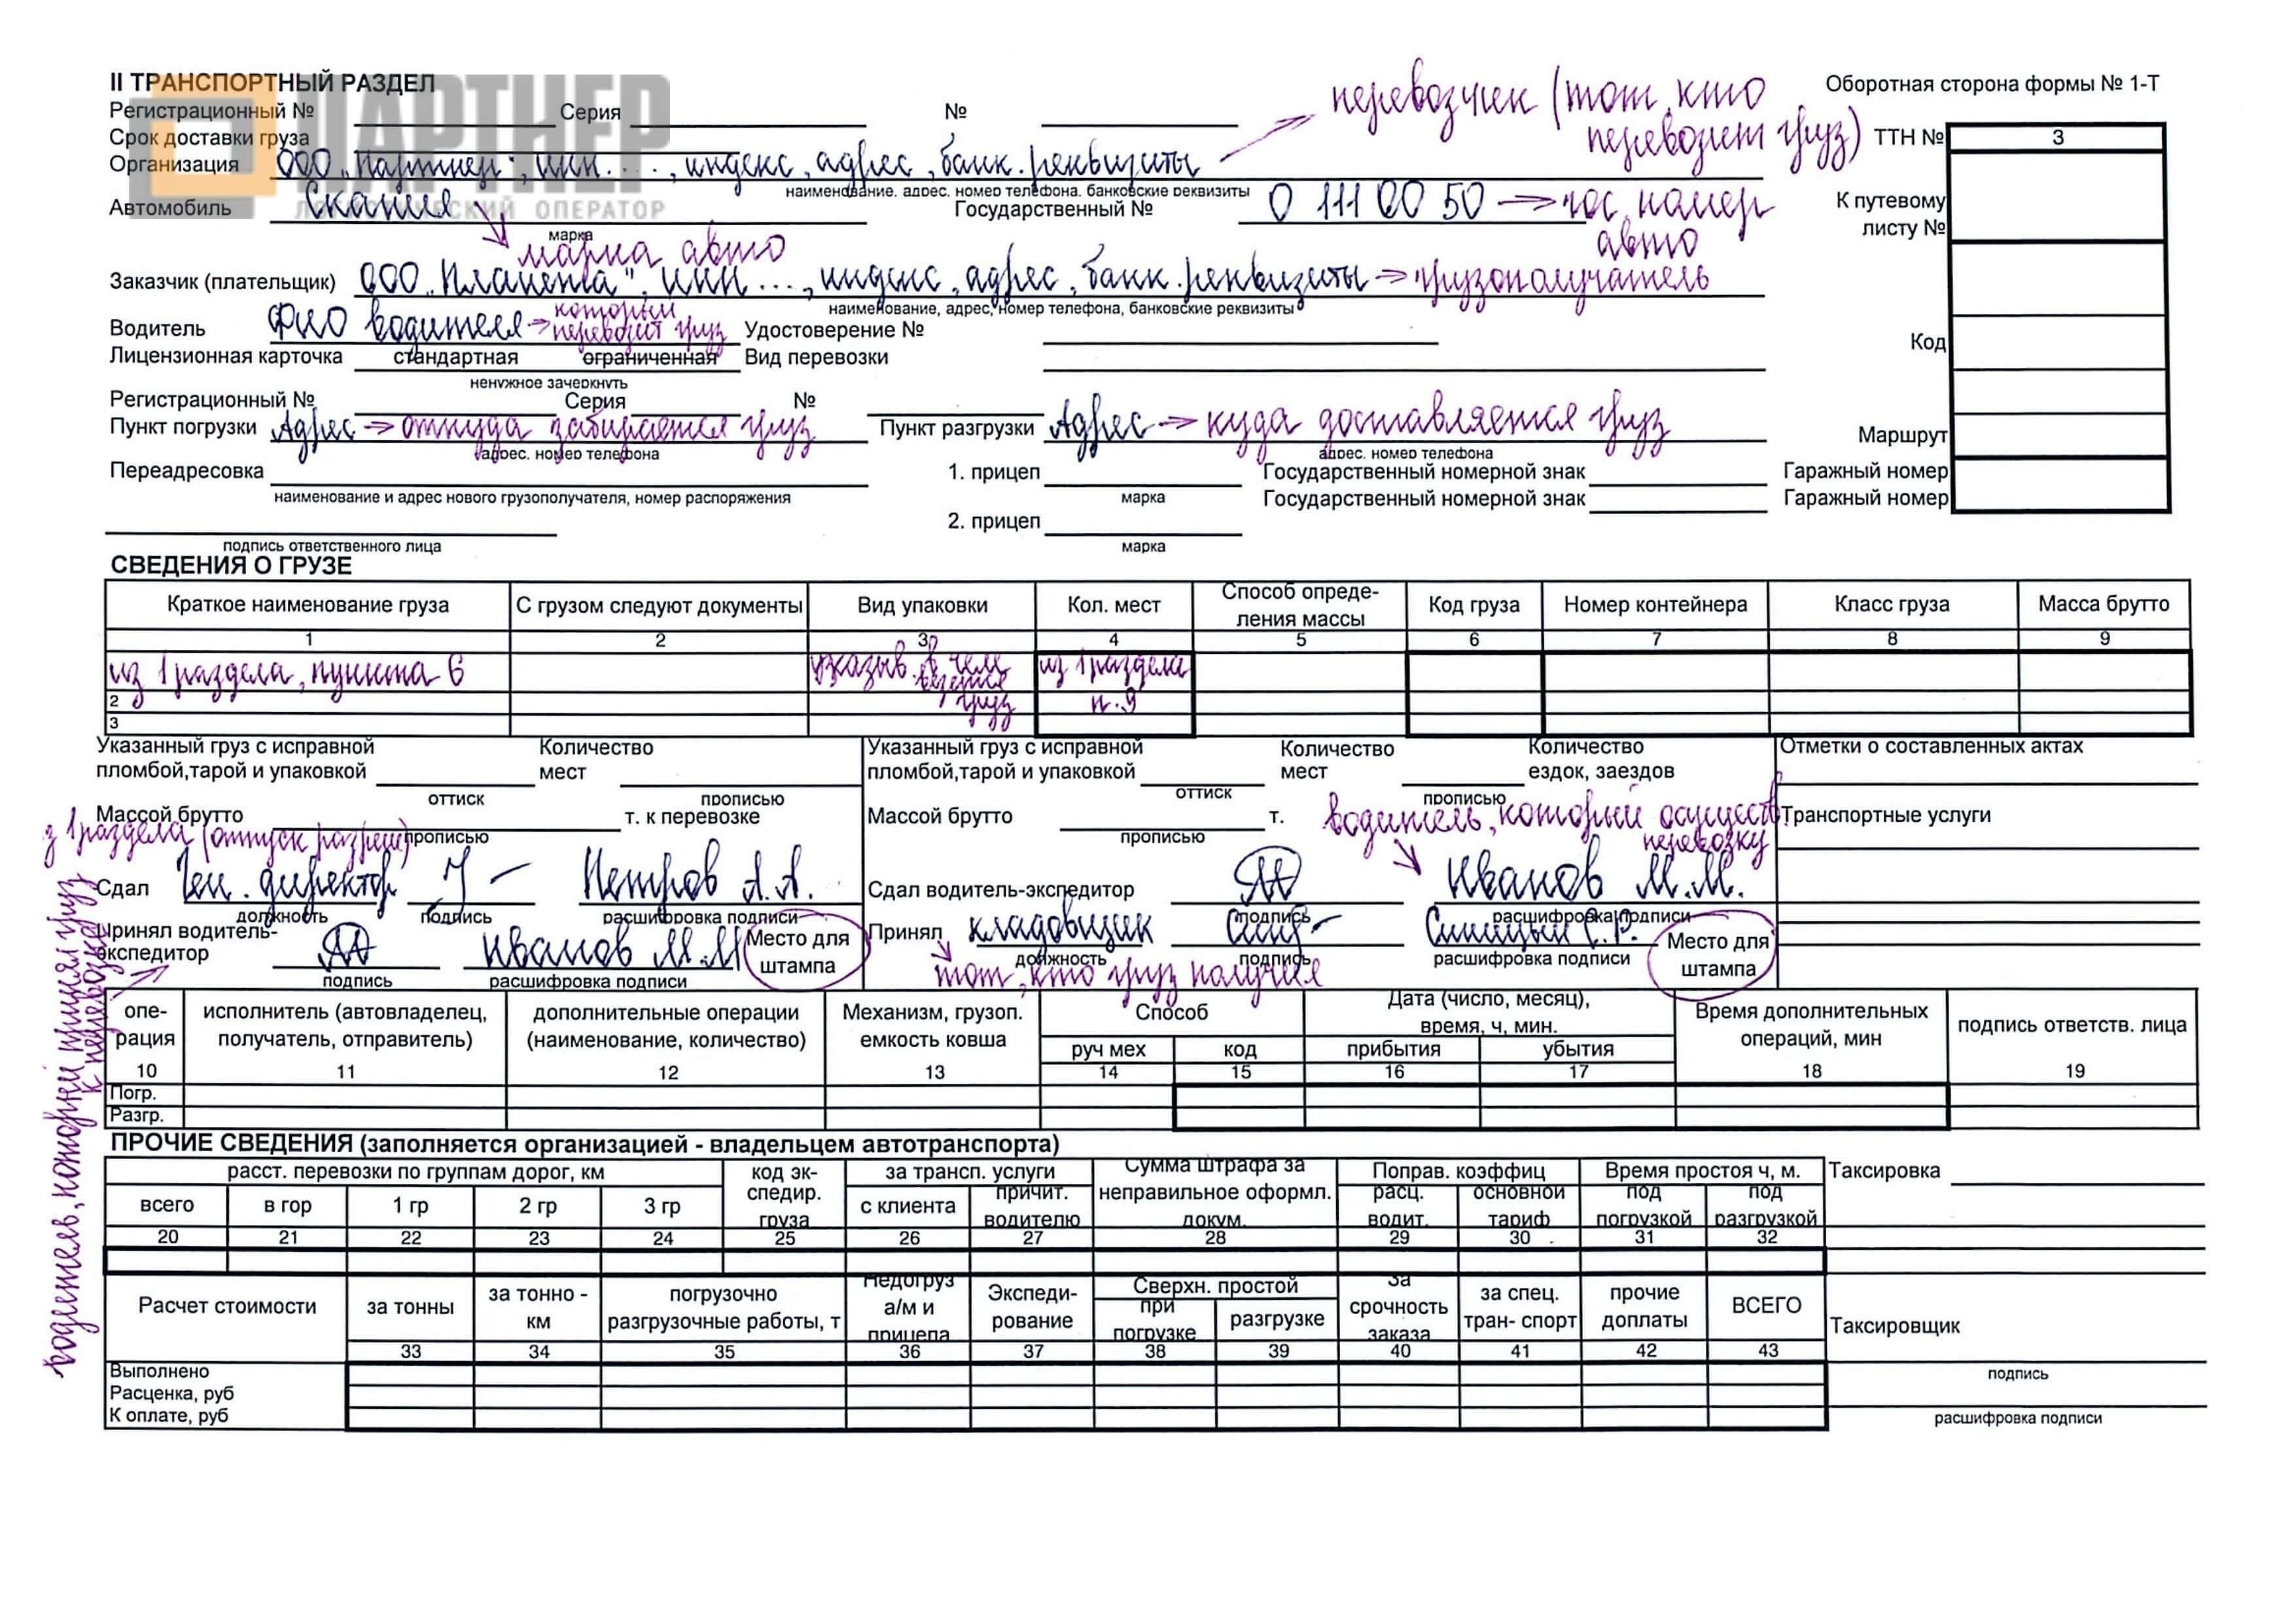 ПАРТНЕР
ЛОГИСТИЧЕСКИЙ ОПЕРАТОР
II ТРАНСПОРТНЫЙ РАЗДЕЛ
Оборотная сторона формы № 1-Т
Регистрационный № Серия №
перевозчик (тот, кто перевозит груз)
ТТН № 3
Срок доставки груза
Организация ООО "Партнер", ИНН...., индекс, адрес, банк. реквизиты
наименование, адрес, номер телефона, банковские реквизиты
Автомобиль Скания Государственный № О 111 ОО 50 → гос. номер авто
К путевому листу №
марка
марка авто
Заказчик (плательщик) ООО "Планета", ИНН ..., индекс, адрес, банк. реквизиты → грузополучатель
наименование, адрес, номер телефона, банковские реквизиты
Водитель ФИО водителя → которым перевозит груз Удостоверение №
Код
Лицензионная карточка стандартная ограниченная Вид перевозки
ненужное зачеркнуть
Регистрационный № Серия №
Пункт погрузки Адрес → откуда забирается груз Пункт разгрузки Адрес → куда доставляется груз
Маршрут
адрес, номер телефона адрес, номер телефона
Переадресовка 1. прицеп Государственный номерной знак Гаражный номер
наименование и адрес нового грузополучателя, номер распоряжения марка Государственный номерной знак Гаражный номер
2. прицеп
подпись ответственного лица марка
СВЕДЕНИЯ О ГРУЗЕ
Краткое наименование груза С грузом следуют документы Вид упаковки Кол. мест Способ опреде- ления массы Код груза Номер контейнера Класс груза Масса брутто
1 2 3 4 5 6 7 8 9
из 1 раздела, пункта 6 указыв. в чем везется груз из 1 раздела п. 9
2
3
Указанный груз с исправной Количество Указанный груз с исправной Количество Количество Отметки о составленных актах
пломбой,тарой и упаковкой мест пломбой,тарой и упаковкой мест ездок, заездов
оттиск прописью оттиск прописью
Массой брутто т. к перевозке Массой брутто т. Транспортные услуги
прописью прописью
з 1 раздела (отпуск разреш)
водитель, который осуществ. перевозку
Сдал Ген. директор Петров А.А. Сдал водитель-экспедитор Иванов М.М.
должность подпись расшифровка подписи подпись расшифровка подписи
Принял водитель-экспедитор Иванов М.М Место для штампа Принял кладовщик Синицын С.Р. Место для штампа
подпись расшифровка подписи должность подпись расшифровка подписи
тот, кто груз получил
водитель, который принял груз к перевозке
опе- рация исполнитель (автовладелец, получатель, отправитель) дополнительные операции (наименование, количество) Механизм, грузоп. емкость ковша Способ Дата (число, месяц), время, ч, мин. Время дополнительных операций, мин подпись ответств. лица
руч мех код прибытия убытия
10 11 12 13 14 15 16 17 18 19
Погр.
Разгр.
ПРОЧИЕ СВЕДЕНИЯ (заполняется организацией - владельцем автотранспорта)
расст. перевозки по группам дорог, км код эк- спедир. груза за трансп. услуги Сумма штрафа за неправильное оформл. докум. Поправ. коэффиц Время простоя ч, м. Таксировка
всего в гор 1 гр 2 гр 3 гр с клиента причит. водителю расц. водит. основной тариф под погрузкой под разгрузкой
20 21 22 23 24 25 26 27 28 29 30 31 32
Расчет стоимости за тонны за тонно - км погрузочно разгрузочные работы, т Недогруз а/м и прицепа Экспеди- рование Сверхн. простой при погрузке разгрузке За срочность заказа за спец. тран- спорт прочие доплаты ВСЕГО Таксировщик
33 34 35 36 37 38 39 40 41 42 43
Выполнено
подпись
Расценка, руб
К оплате, руб
расшифровка подписи